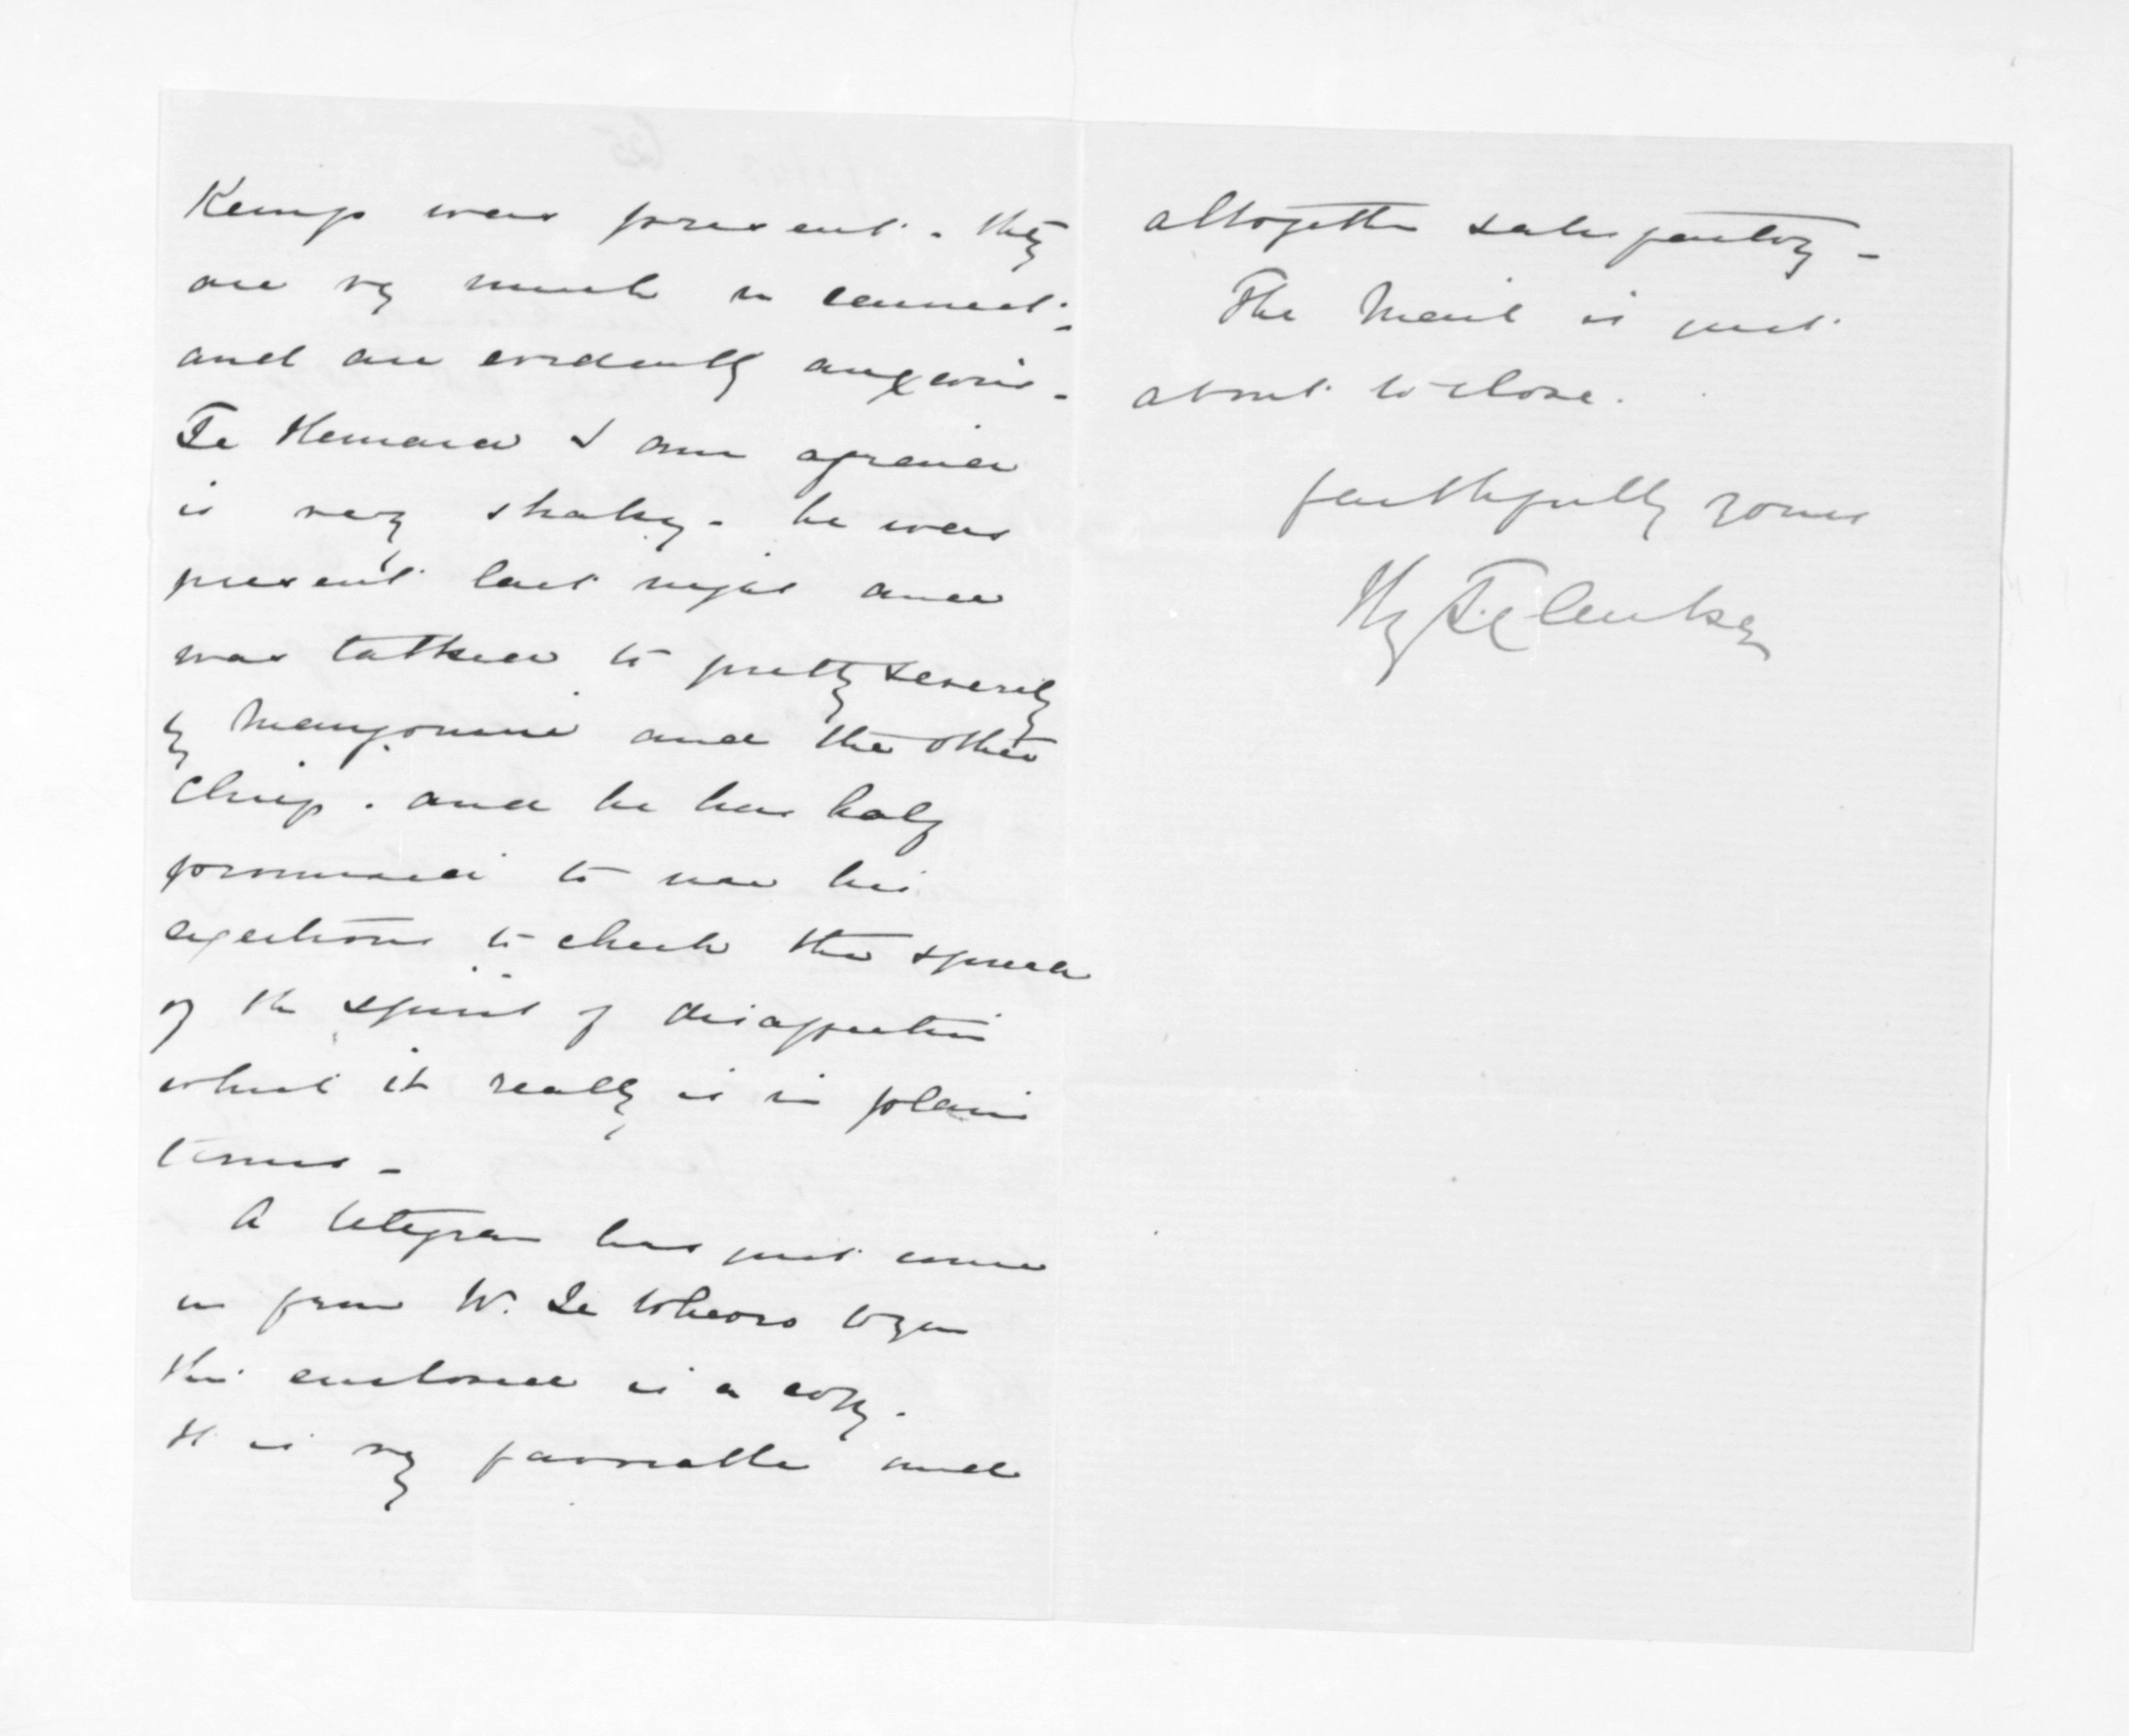 Kemp was present. they
are vy much in earnest.
and are evidently anxious.
Te Hemara I am afraid
is very shaky. he was
present last night and
was talked to pretty severely
by Mangonui and the other
Chiefs. and he has half
promised to use his
exertions to check the spread
of the spirit of disaffection
what it really is in plain
terms -
A telegram has just come
in from W. Te Wheoro to you
this enclosed is a copy.
It is vy favorable and
altogether satisfactory -
The Mail is just
about to close.
faithfully yours
Hy T Clarke